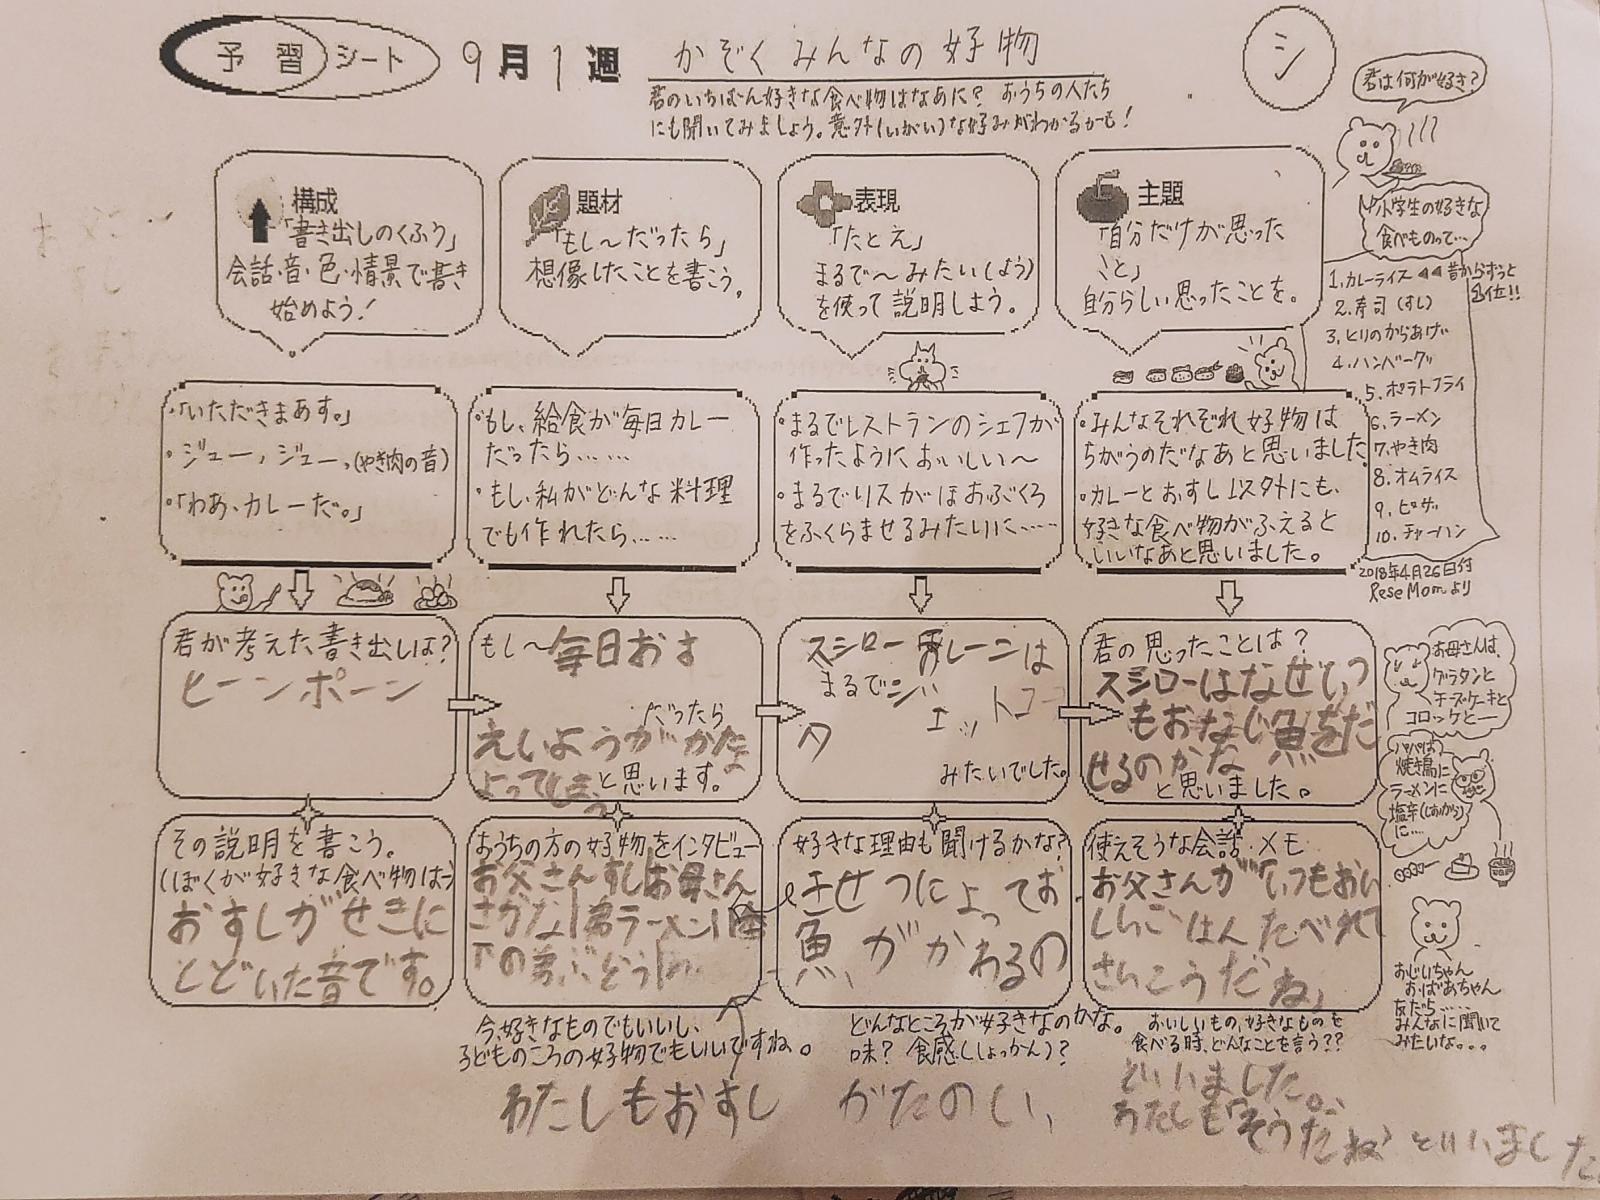 予習シート 9月1週 かぞくみんなの好物
シ
君のいちばん好きな食べ物はなあに? おうちの人たち
にも聞いてみましょう。意外(いがい)な好みがわかるかも!
君は何が好き?
小学生の好きな
食べものって…
1.カレーライス ◀◀昔からずっと
1位!!
2.寿司(すし)
3.とりのからあげ
4.ハンバーグ
5.ポテトフライ
6.ラーメン
7.やき肉
8.オムライス
9.ピザ
10.チャーハン
2018年4月26日付
ReseMomより
構成
「書き出しのくふう」
会話・音・色・情景で書き
始めよう!
題材
「もし〜だったら」
想像したことを書こう。
表現
「たとえ」
まるで〜みたい(よう)
を使って説明しよう。
主題
「自分だけが思った
こと」
自分らしい思ったことを。
・「いただきまあす。」
・ジュー、ジュー。(やき肉の音)
・「わあ、カレーだ。」
・もし、給食が毎日カレー
だったら……
・もし、私がどんな料理
でも作れたら……
・まるでレストランのシェフが
作ったようにおいしい〜
・まるでリスがほおぶくろ
をふくらませるみたいに……
・みんなそれぞれ好物は
ちがうのだなあと思いました。
・カレーとおすし以外にも、
好きな食べ物がふえると
いいなあと思いました。
君が考えた書き出しは?
ピーンポーン
もし〜毎日おす
だったら
えいようがかたよ
よってしまうと思います。
スシローのレーンは
まるでジェットコー
みたいでした。
君の思ったことは?
スシローはなぜいつ
もおなじ魚をだ
せるのかな
と思いました。
お母さんは、
グラタンと
チーズケーキと
コロッケと—
パパは、
焼き鳥に
ラーメンに
塩辛(しおから)
に…
その説明を書こう。
(ぼくが好きな食べ物は)
おすしがせきに
とどいた音です。
おうちの方の好物をインタビュー
お父さんすしお母さん
さかな|弟ラーメン|
下の弟ぶどう
今、好きなものでもいいし、
子どものころの好物でもいいですね。
わたしもおすし
好きな理由も聞けるかな?
きせつによってお
魚がかわるの
どんなところが好きなのかな。
味? 食感(しょっかん)?
がたのしい、
使えそうな会話・メモ
お父さんが「いつもおい
しいごはんたべれて
さいこうだね」
おいしいもの、好きなものを
食べる時、どんなことを言う??
といいました。
わたしも「そうだね」といいました
おじいちゃん
おばあちゃん
友だち…
みんなに聞いて
みたいな。。。